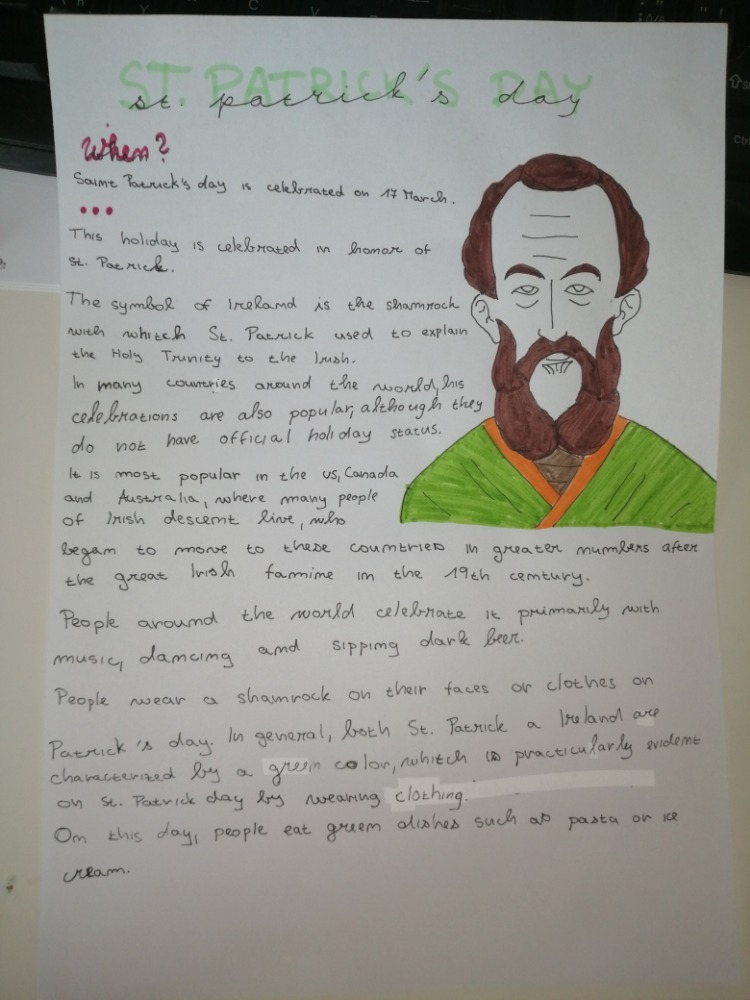 ST. PATRICK'S DAY
st. patrick's day
When?
Saint Patrick's day is celebrated on 17 March.
...
This holiday is celebrated in honor of
St. Patrick.
The symbol of Ireland is the shamrock
with whitch St. Patrick used to explain
the Holy Trinity to the Irish.
In many countries around the world, his
celebrations are also popular, although they
do not have official holiday status.
It is most popular in the US, Canada
and Australia, where many people
of Irish descent live, who
began to move to these countries in greater numbers after
the great Irish famine in the 19th century.
People around the world celebrate it primarily with
music, dancing and sipping dark beer.
People wear a shamrock on their faces or clothes on
Patrick's day. In general, both St. Patrick a Ireland are
characterized by a green color, whitch is practicularly evident
on St. Patrick day by wearing clothing.
On this day, people eat green dishes such as pasta or ice
cream.